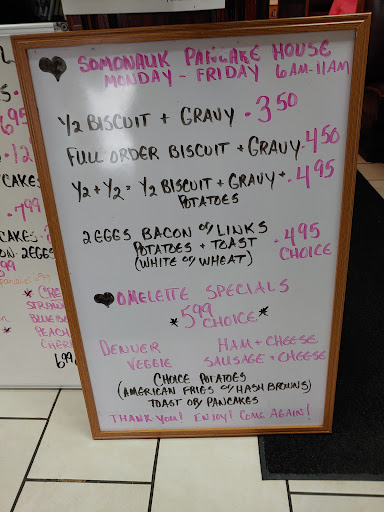 SOMONAUK PANCAKE HOUSE
MONDAY - FRIDAY 6AM-11AM
1/2 BISCUIT + GRAVY - 3.50
FULL ORDER BISCUIT + GRAVY - 4.50
1/2 + 1/2 = 1/2 BISCUIT + GRAVY + - 4.95
POTATOES
2 EGGS BACON or LINKS
POTATOES + TOAST - 4.95
(WHITE or WHEAT) CHOICE
OMELETTE SPECIALS
* 5.99 *
CHOICE
DENVER HAM + CHEESE
VEGGIE SAUSAGE + CHEESE
CHOICE POTATOES
(AMERICAN FRIES or HASH BROWNS)
TOAST OR PANCAKES
THANK YOU! ENJOY! COME AGAIN!